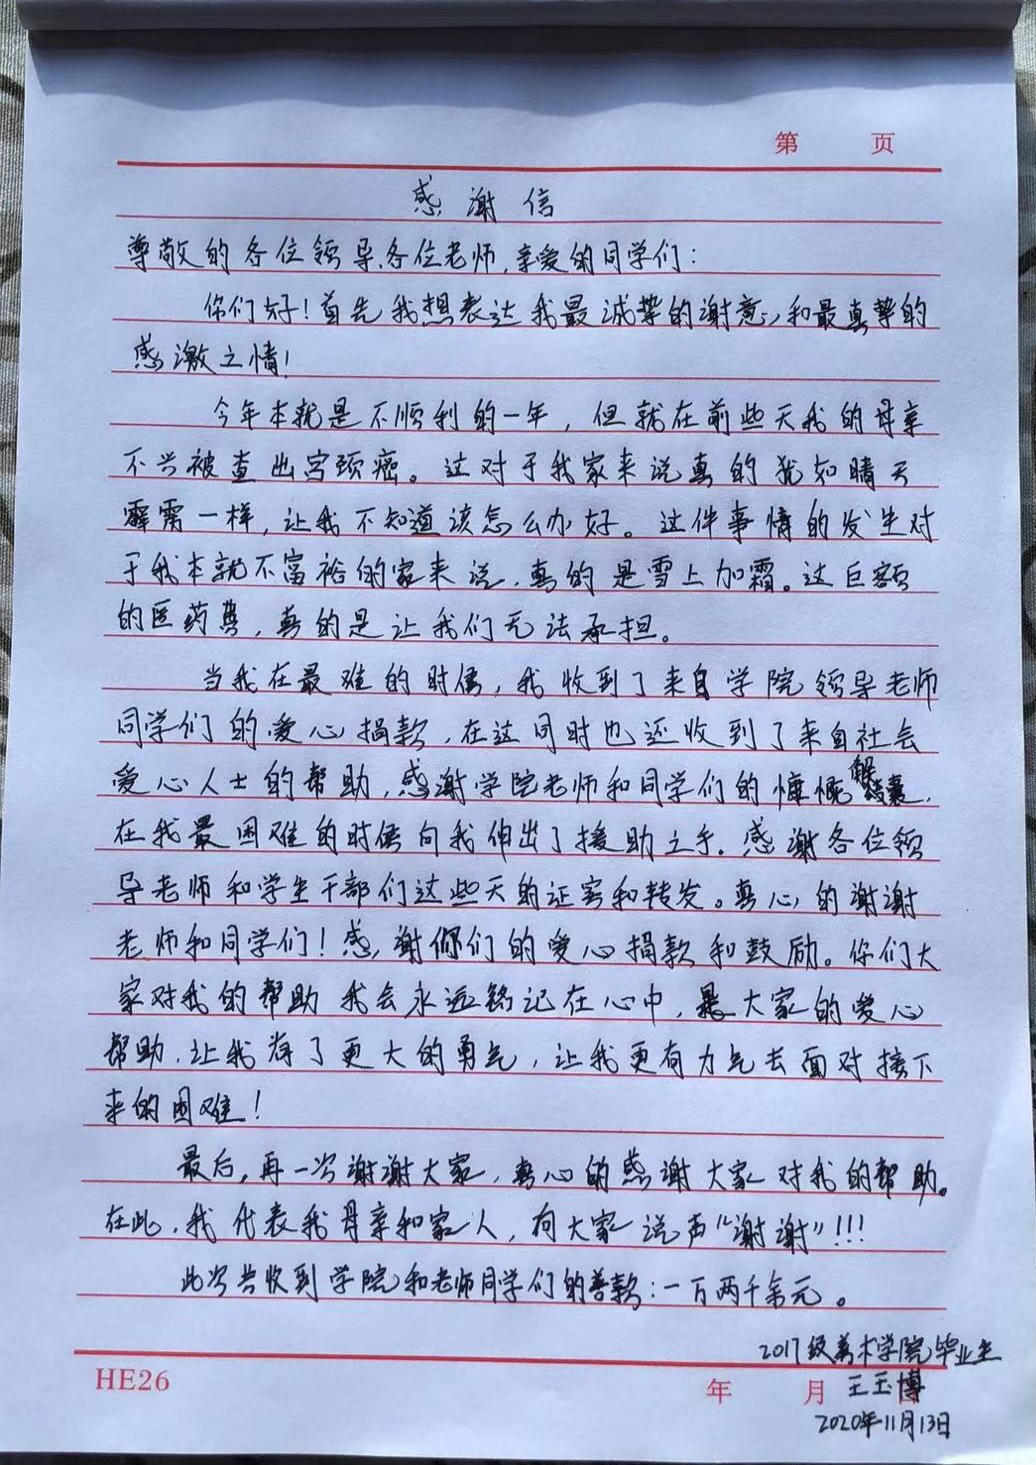 第 页
感谢信
尊敬的各位领导、各位老师,亲爱的同学们:
你们好!首先我想表达我最诚挚的谢意,和最真挚的
感激之情!
今年本就是不顺利的一年,但就在前些天我的母亲
不兴被查出宫颈癌。这对于我家来说真的犹如晴天
霹雳一样,让我不知道该怎么办好。这件事情的发生对
于我本就不富裕的家来说,真的是雪上加霜。这巨额
的医药费,真的是让我们无法承担。
当我在最难的时候,我收到了来自学院领导老师
同学们的爱心捐款,在这同时也还收到了来自社会
爱心人士的帮助,感谢学院老师和同学们的慷慨解囊,
在我最困难的时候向我伸出了援助之手。感谢各位领
导老师和学生干部们这些天的证实和转发。真心的谢谢
老师和同学们!感谢你们的爱心捐款和鼓励。你们大
家对我的帮助我会永远铭记在心中,是大家的爱心
帮助,让我有了更大的勇气,让我更有力气去面对接下
来的困难!
最后,再一次谢谢大家,真心的感谢大家对我的帮助。
在此,我代表我母亲和家人,向大家说声“谢谢”!!!
此次共收到学院和老师同学们的善款:一万两千余元。
2017级美术学院毕业生
HE26 年 月 王玉博
2020年11月13日